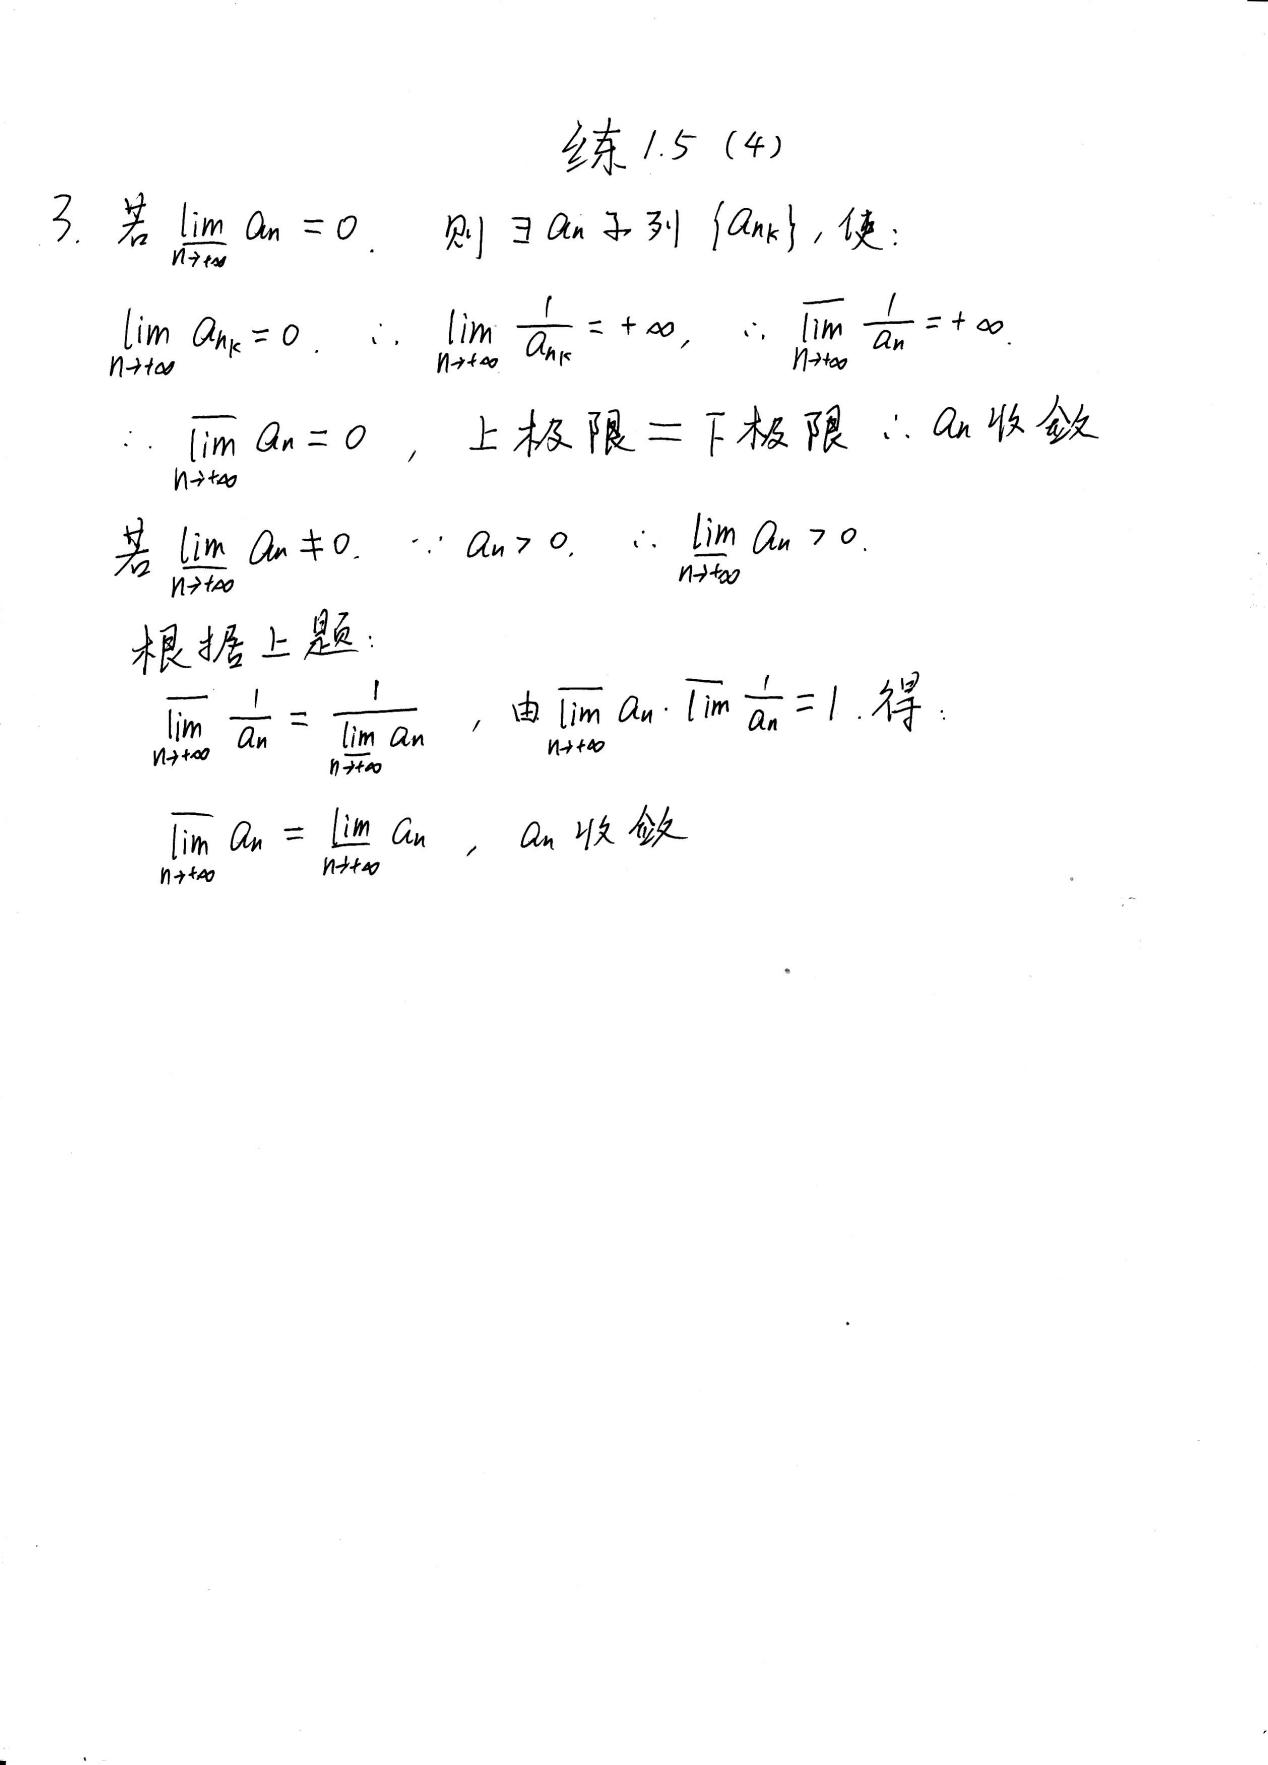 练1.5 (4)
3. 若 \varliminf_{n→+∞} an = 0. 则 ∃ an 子列 {ank}, 使:
lim_{n→+∞} ank = 0. ∴ lim_{n→+∞} 1/ank = +∞, ∴ \varlimsup_{n→+∞} 1/an = +∞.
∴ \varlimsup_{n→+∞} an = 0, 上极限 = 下极限 ∴ an 收敛
若 \varliminf_{n→+∞} an ≠ 0. ∵ an > 0. ∴ \varliminf_{n→+∞} an > 0.
根据上题:
\varlimsup_{n→+∞} 1/an = 1/\varliminf_{n→+∞} an, 由 \varlimsup_{n→+∞} an · \varlimsup 1/an = 1. 得:
\varlimsup_{n→+∞} an = \varliminf_{n→+∞} an, an 收敛